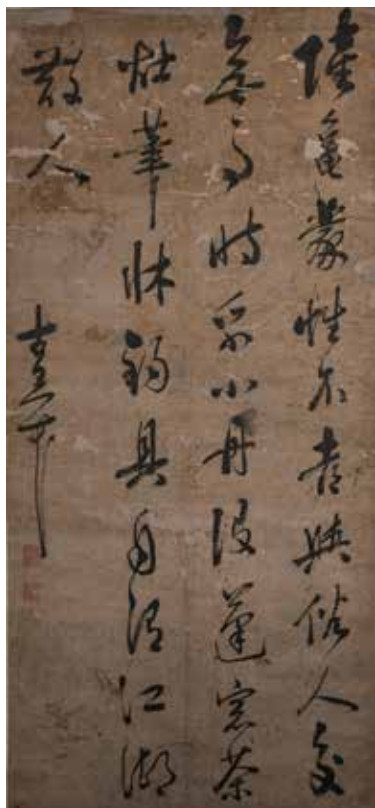 陸龜蒙性不喜與俗人交
無事時乘小舟設蓬窓茶
灶筆牀釣具自謂江湖
散人